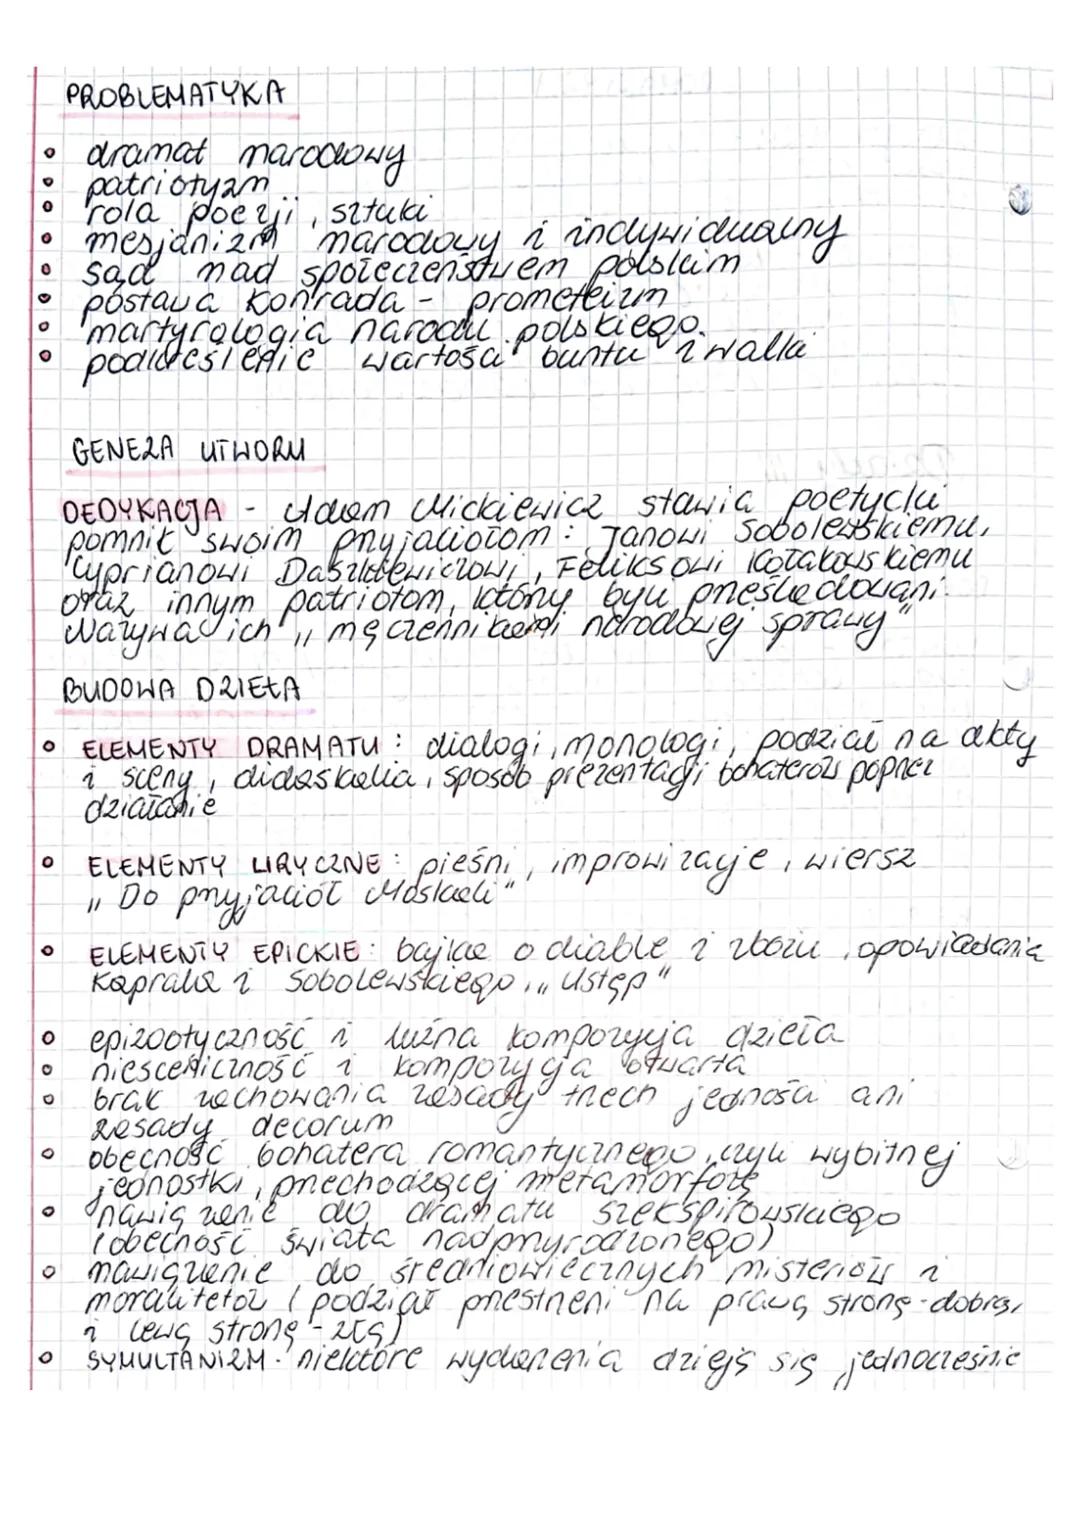 PROBLEMATYKA
dramat narodowy
patriotyzm
rola poezji, sztuki
mesjanizm narodowy i indywidualny
sąd nad społeczeństwem polskim
postawa Konrada - prometeizm
martyrologia narodu polskiego.
podkreślenie wartości buntu i walki
GENEZA UTWORU
DEDYKACJA - Adam Mickiewicz stawia poetycki
pomnik swoim przyjaciołom: Janowi Sobolewskiemu,
Cyprianowi Daszkiewiczowi, Feliksowi Kołakowskiemu
oraz innym patriotom, którzy byli prześladowani.
Nazywa ich „męczennikami narodowej sprawy"
BUDOWA DZIEŁA
ELEMENTY DRAMATU: dialogi, monologi, podział na akty
i sceny, didaskalia, sposób prezentacji bohaterów poprzez
działanie
ELEMENTY LIRYCZNE: pieśni, improwizacje, wiersz
„Do przyjaciół Moskali"
ELEMENTY EPICKIE: bajka o diable i zbożu, opowiadania
Kaprala i Sobolewskiego, „Ustęp"
epizodyczność i luźna kompozycja dzieła
niesceniczność i kompozycja otwarta
brak zachowania zasady trzech jedności ani
zasady decorum
obecność bohatera romantycznego, czyli wybitnej
jednostki, przechodzącej metamorfozę
nawiązanie do dramatu szekspirowskiego
(obecność świata nadprzyrodzonego)
nawiązanie do średniowiecznych misteriów i
moralitetów (podział przestrzeni na prawą stronę - dobrą,
i lewą stronę - złą)
SYMULTANIZM - niektóre wydarzenia dzieją się jednocześnie